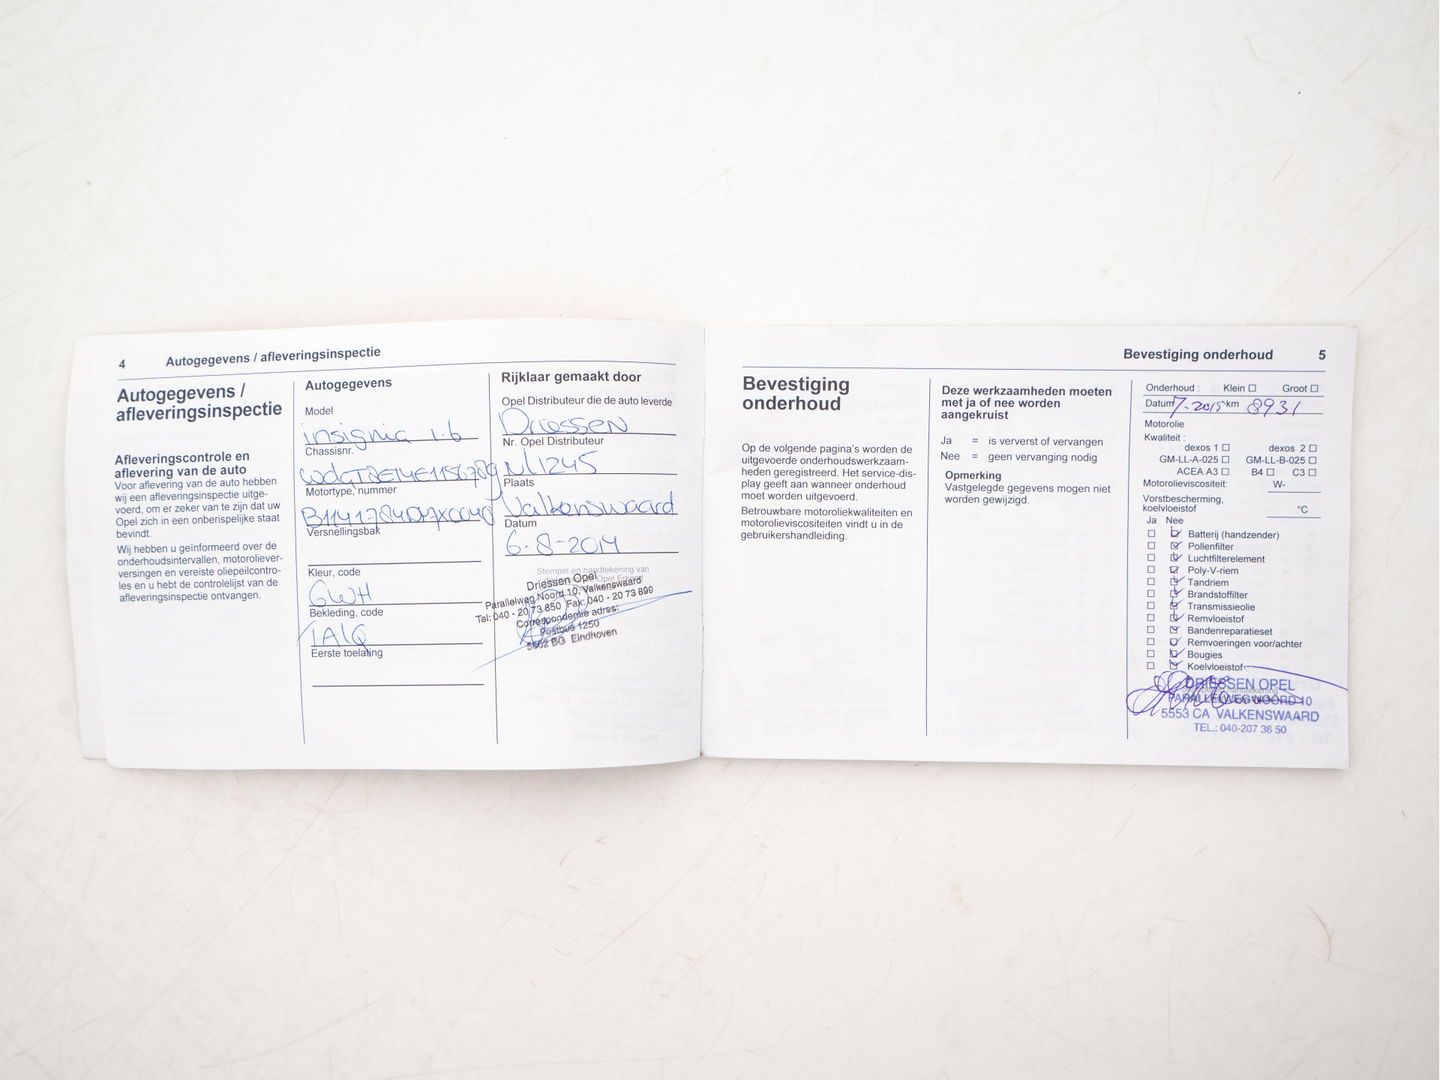 4 Autogegevens / afleveringsinspectie
Autogegevens /
afleveringsinspectie
Afleveringscontrole en
aflevering van de auto
Voor aflevering van de auto hebben
wij een afleveringsinspectie uitge-
voerd, om er zeker van te zijn dat uw
Opel zich in een onberispelijke staat
bevindt.
Wij hebben u geïnformeerd over de
onderhoudsintervallen, motoroliever-
versingen en vereiste oliepeilcontro-
les en u hebt de controlelijst van de
afleveringsinspectie ontvangen.
Autogegevens
Model
insignia 1.6
Chassisnr.
Motortype, nummer
Versnellingsbak
Kleur, code
GWH
Bekleding, code
TAIQ
Eerste toelating
Rijklaar gemaakt door
Opel Distributeur die de auto leverde
Driessen
Nr. Opel Distributeur
NL1245
Plaats
Valkenswaard
Datum
6-8-2014
Stempel en handtekening van
Driessen Opel
Parallelweg Noord 10, Valkenswaard
Tel: 040 - 20 73 850 Fax: 040 - 20 73 899
Correspondentie adres:
Postbus 1250
5602 BG Eindhoven
Bevestiging onderhoud 5
Bevestiging
onderhoud
Op de volgende pagina's worden de
uitgevoerde onderhoudswerkzaam-
heden geregistreerd. Het service-dis-
play geeft aan wanneer onderhoud
moet worden uitgevoerd.
Betrouwbare motoroliekwaliteiten en
motorolieviscositeiten vindt u in de
gebruikershandleiding.
Deze werkzaamheden moeten
met ja of nee worden
aangekruist
Ja = is ververst of vervangen
Nee = geen vervanging nodig
Opmerking
Vastgelegde gegevens mogen niet
worden gewijzigd.
Onderhoud : Klein Groot
Datum 7-2015 km 8931
Motorolie
Kwaliteit :
dexos 1 dexos 2
GM-LL-A-025 GM-LL-B-025
ACEA A3 B4 C3
Motorolieviscositeit: W-
Vorstbescherming,
koelvloeistof °C
Ja Nee
Batterij (handzender)
Pollenfilter
Luchtfilterelement
Poly-V-riem
Tandriem
Brandstoffilter
Transmissieolie
Remvloeistof
Bandenreparatieset
Remvoeringen voor/achter
Bougies
Koelvloeistof
DRIESSEN OPEL
PARALLELWEG NOORD 10
5553 CA VALKENSWAARD
TEL.: 040-207 38 50